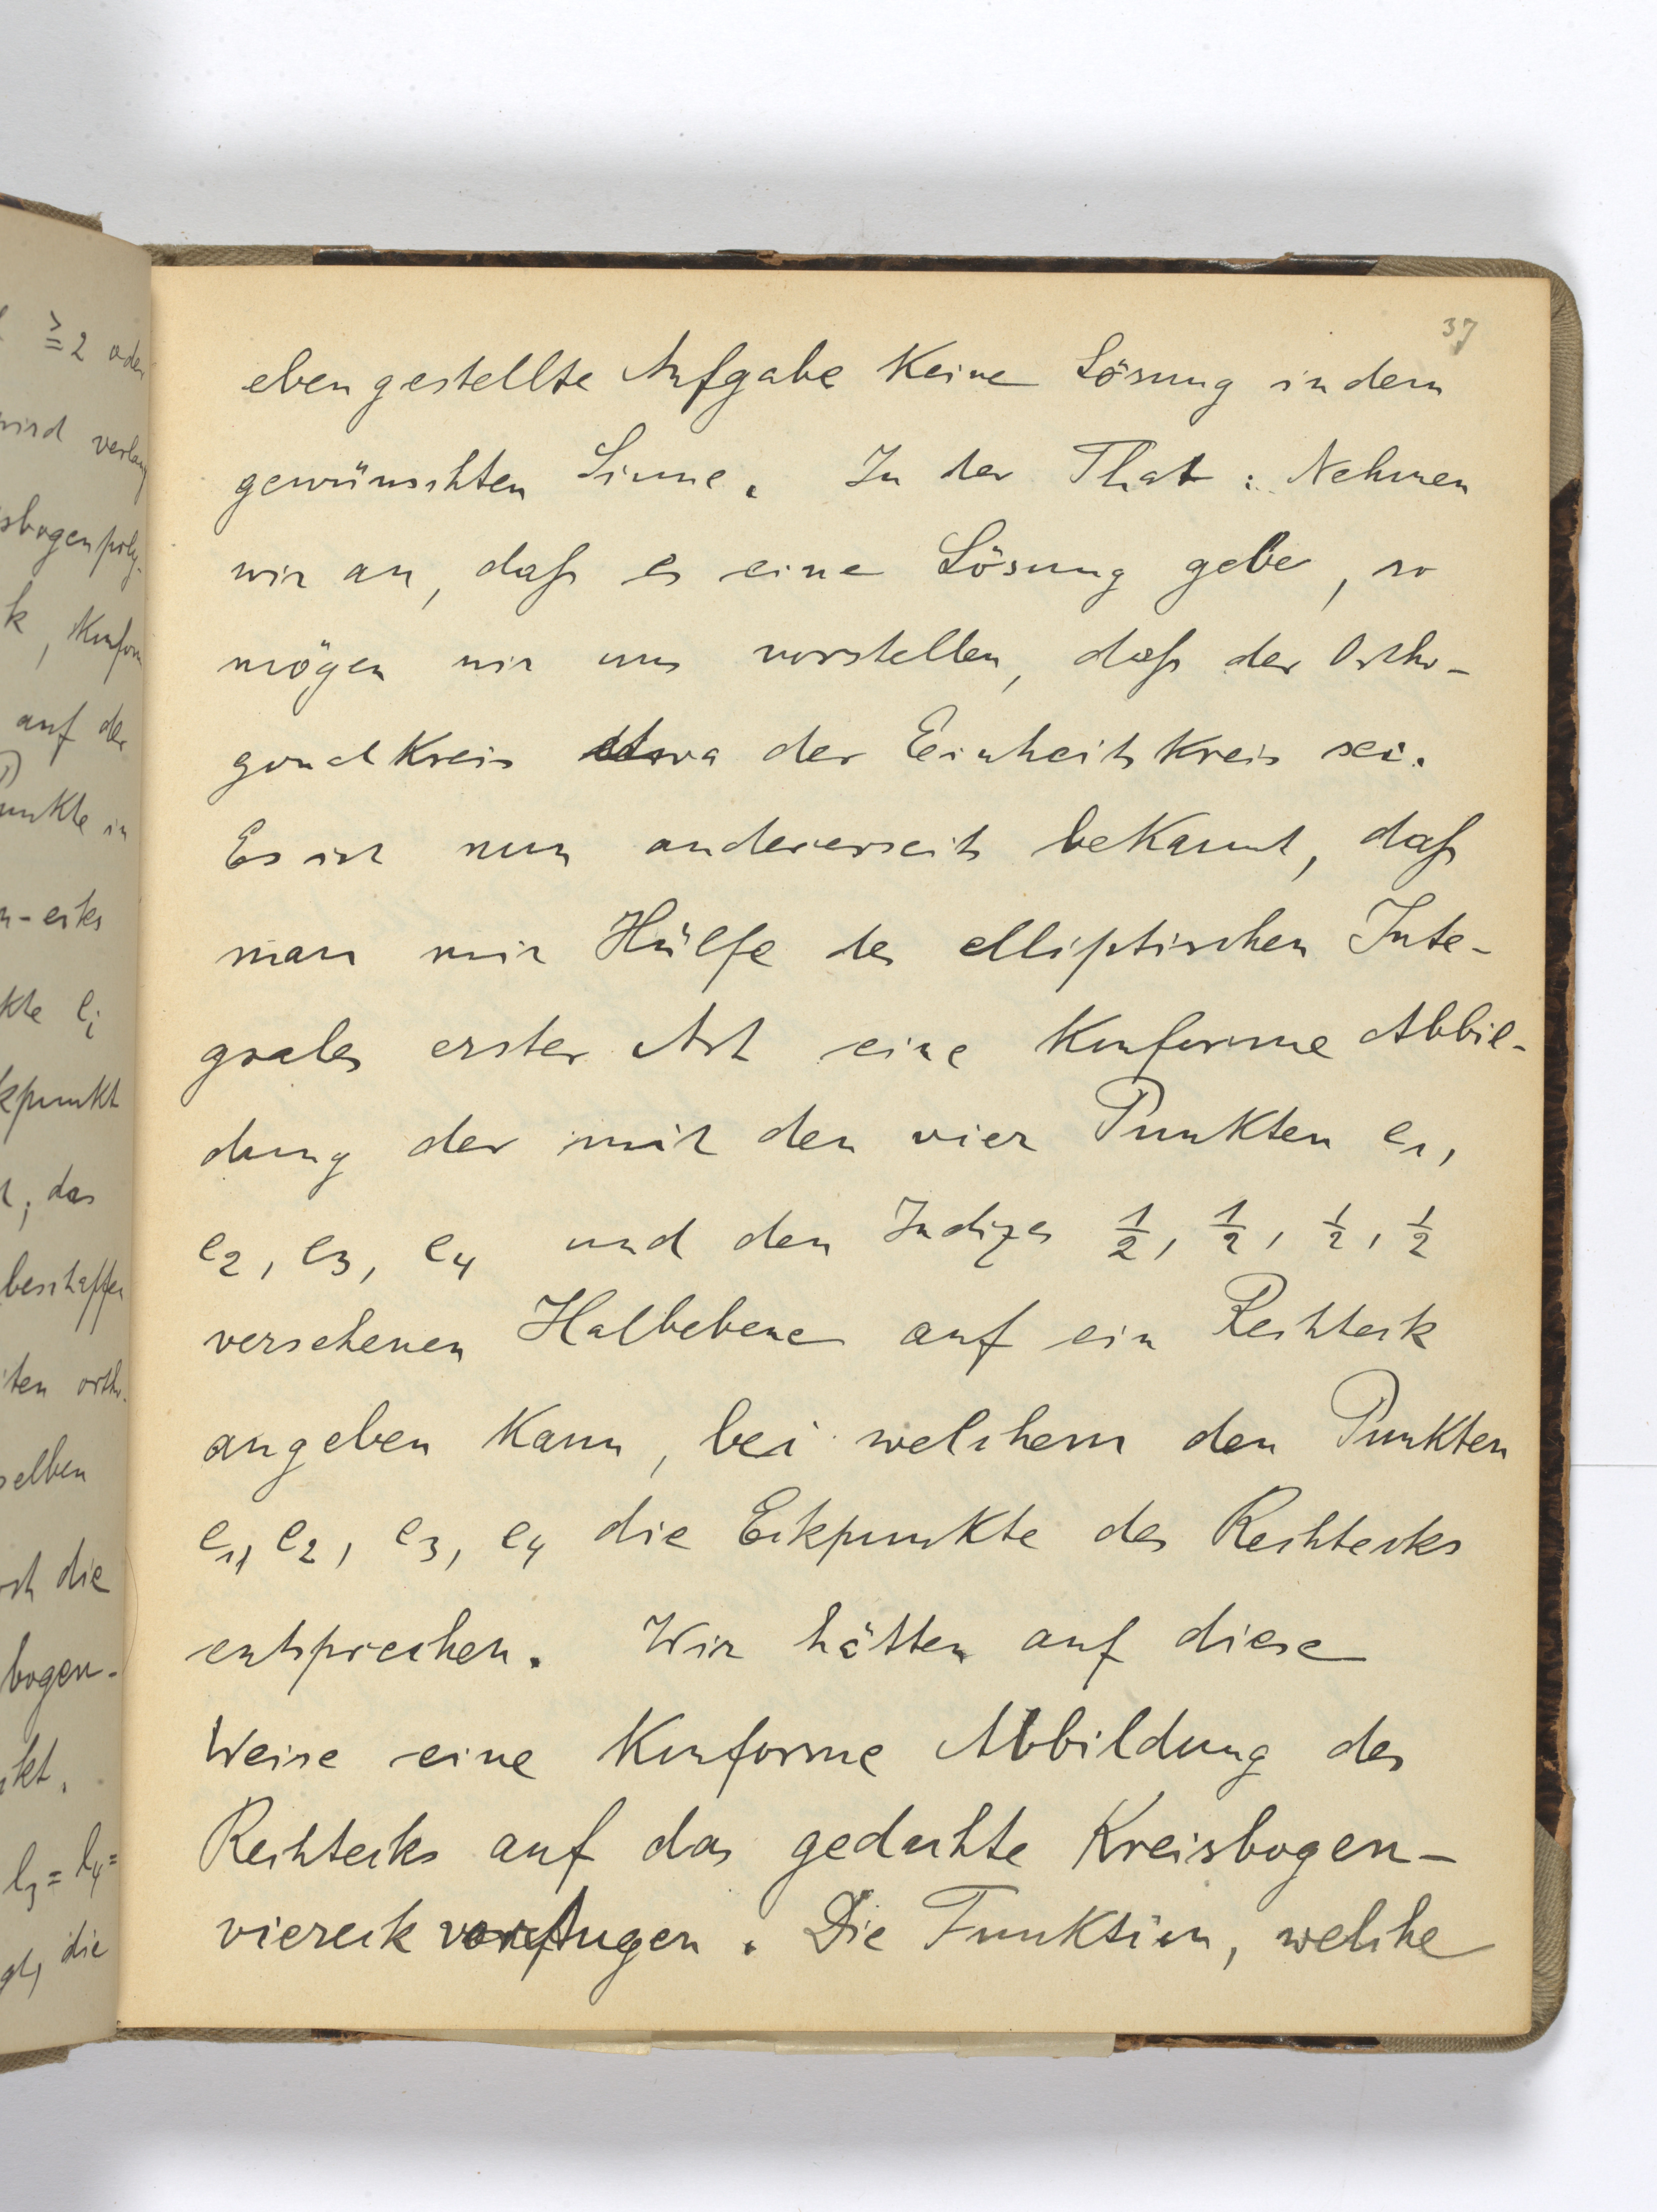 37
eben gestellte Aufgabe keine Lösung in dem
gewünschten Sinne. In der That: Nehmen
wir an, daß es eine Lösung gebe, so
mögen wir uns vorstellen, daß der Ortho-
gonalkreis etwa der Einheitskreis sei.
Es ist nun andererseits bekannt, daß
man mit Hülfe des elliptischen Inte-
grales erster Art eine konforme Abbil-
dung der mit den vier Punkten e₁,
e₂, e₃, e₄ und den Indizes ½, ½, ½, ½
versehenen Halbebene auf ein Rechteck
angeben kann, bei welchem den Punkten
e₁, e₂, e₃, e₄ die Eckpunkte des Rechtecks
entsprechen. Wir hätten auf diese
Weise eine konforme Abbildung des
Rechtecks auf das gedachte Kreisbogen-
viereck vor Augen. Die Funktion, welche
≧ 2 oder
wird verlang
sbogenpoly-
k, konform
auf der
Punkte in
n-ecks
kte eᵢ
kpunkt
t; das
beschaffen
iten ortho-
selben
die
bogen-
kt.
l₃ = l₄ =
die